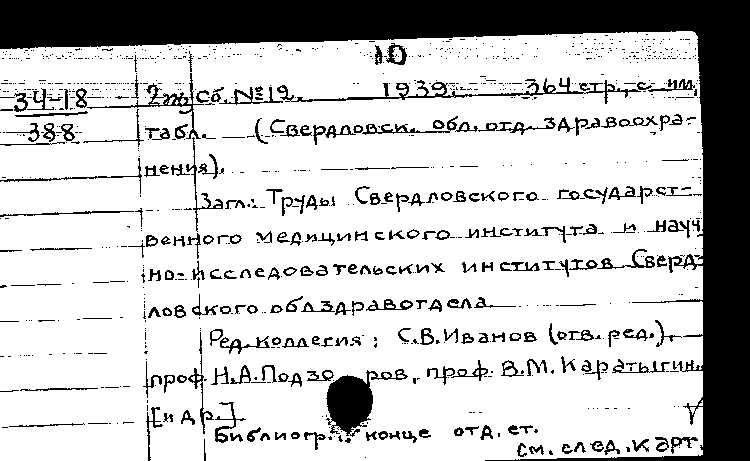 10
34-18 2 экз Сб. № 12. 1939. 364 стр., с. илл,
388 табл. (Свердловск. обл. отд. здравоохра-
нения).
Загл.: Труды Свердловского государст-
венного медицинского института и науч
но-исследовательских институтов Сверд-
ловского облздравотдела.
Ред. коллегия: С.В. Иванов (отв. ред.),
проф. Н.А. Подзо ров, проф. В.М. Каратыгин.
[и др.]
Библиогр. конце отд. ст.
см. след. карт.